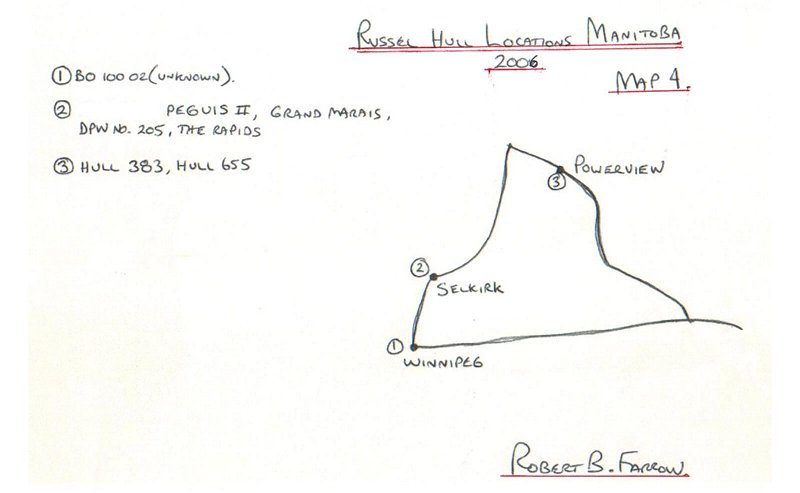 RUSSEL HULL LOCATIONS MANITOBA
2006
MAP 4.
① BO 100 02 (UNKNOWN).
② PEGUIS II, GRAND MARAIS,
DPW NO. 205, THE RAPIDS
③ HULL 383, HULL 655
③ POWERVIEW
② SELKIRK
① WINNIPEG
ROBERT B. FARROW.